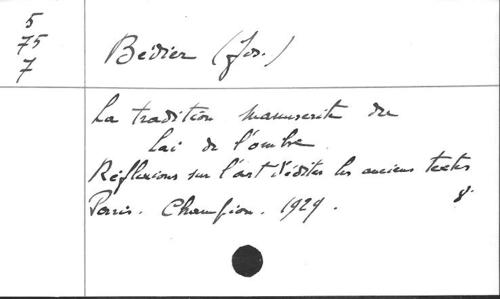 5
75
7
Bédier (Jos.)
La tradition manuscrite du
Lai de l'ombre.
Réflexions sur l'art d'éditer les anciens textes
Paris. Champion. 1929. 8°